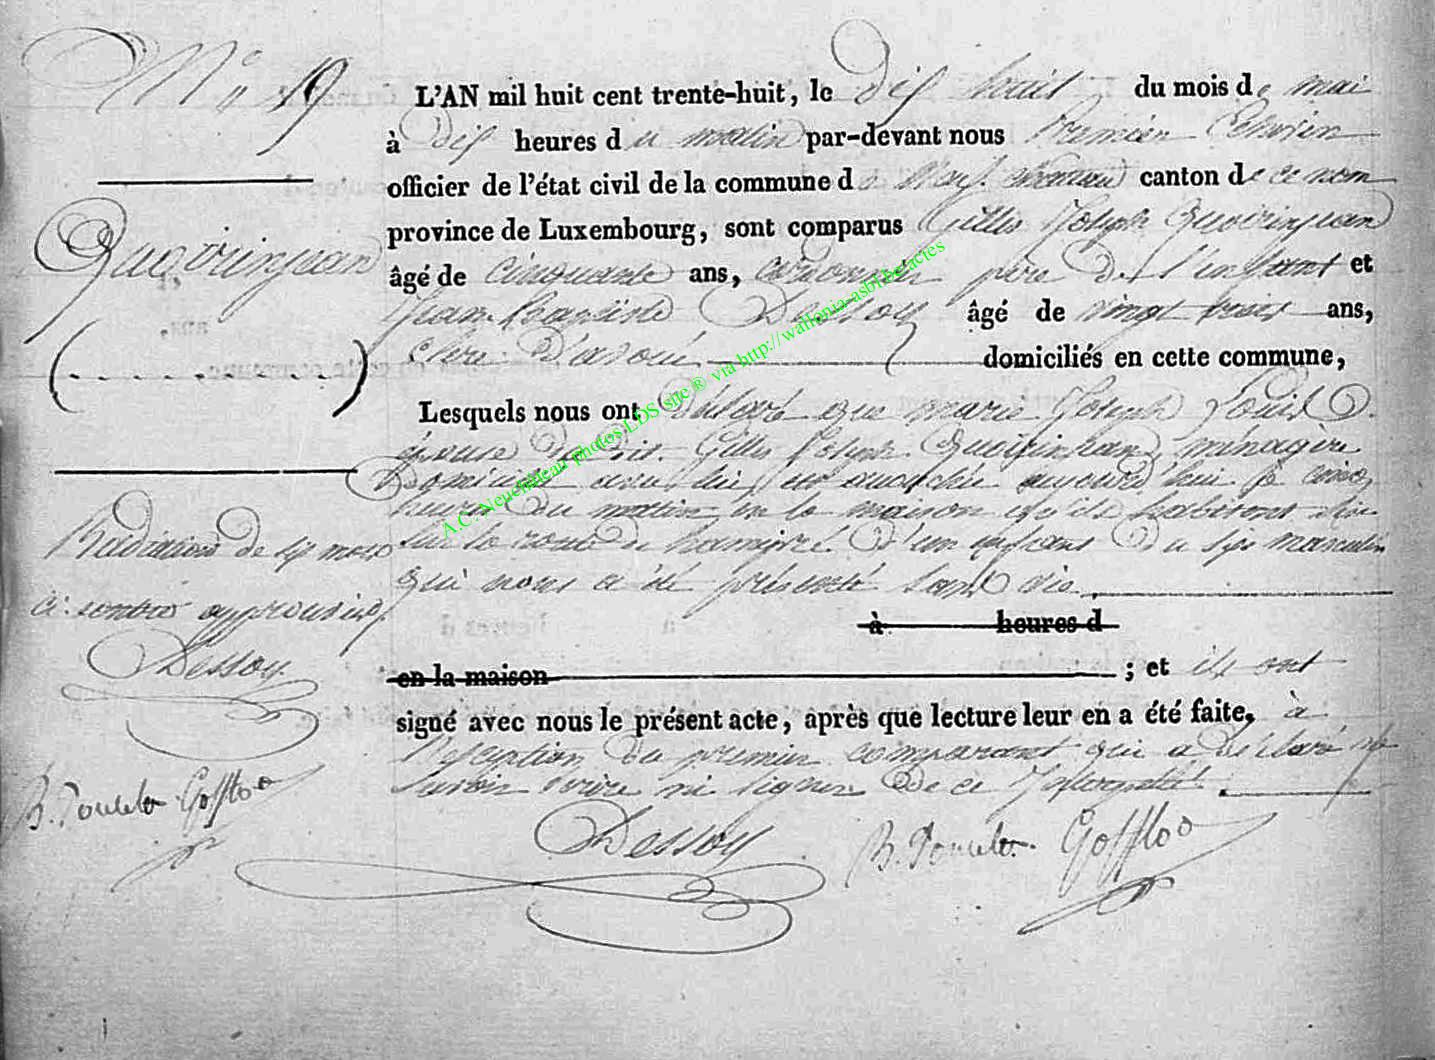 N° 19
L'AN mil huit cent trente-huit, le dix huit du mois de mai
à dix heures du matin par-devant nous Premier Echevin
officier de l'état civil de la commune de Neufchateau canton de ce nom
province de Luxembourg, sont comparus Gilles Joseph Quoirinjean
âgé de cinquante ans, cordonnier père de l'enfant et
Jean Baptiste Dessoy âgé de vingt trois ans,
Clerc D'avoué domiciliés en cette commune,
Lesquels nous ont Déclaré que marie Joseph Louis
épouse Dudit Gilles Joseph Quoirinjean, ménagère
Domiciliée avec lui est accouchée aujourd'hui à cinq
heures Du matin en la maison qu'ils habitent sise
sur la route de hamipré D'un enfant Du sexe masculin
qui nous a été présenté sans vie
à heures d
en la maison ; et ils ont
signé avec nous le présent acte, après que lecture leur en a été faite, à
l'exception du premier comparant qui a déclaré ne
savoir écrire ni signer De ce Interpellé
Quoirinjean
(. . . . . . . . . .)
Radiation de six mots
ci-contre approuvée
Dessoy
B. Poncelet Gofflot
Dessoy B. Poncelet Gofflot
A.C. Neufchâteau photos LDS site ® via http://wallonia-asbl.be/actes